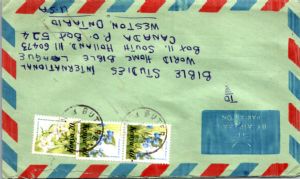 BIBLE STUDIES INTERNATIONAL
WORLD HOME BIBLE LEAGUE
BOX 11. SOUTH HOLLAND, Ill 60473
CANADA P.O. BOX 524
WESTON, ONTARIO
U.S.A
TO
PAR AVION